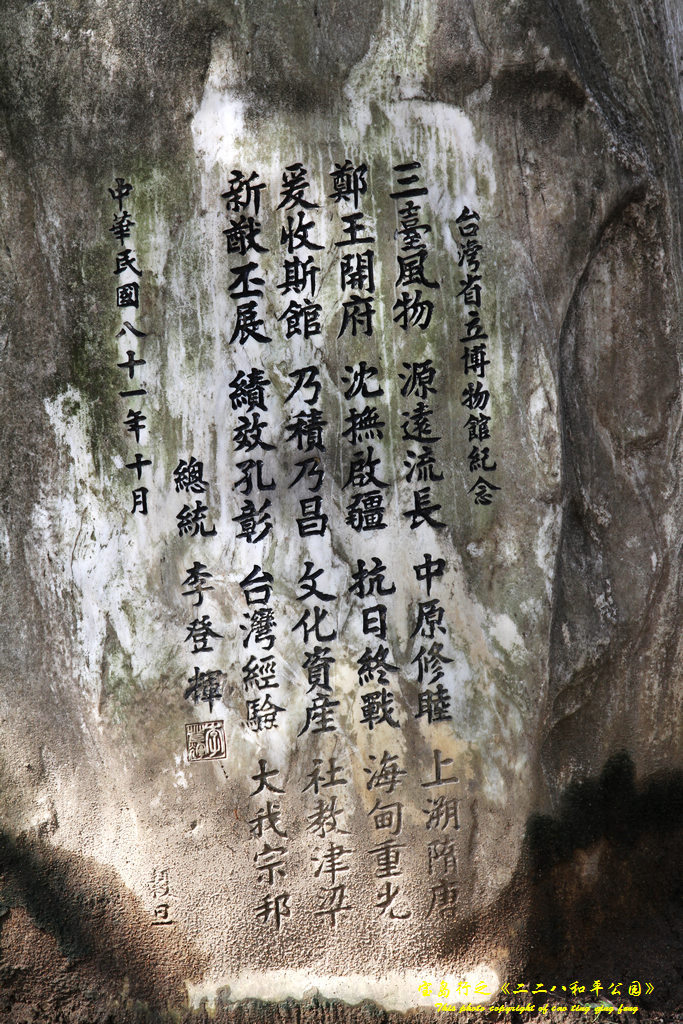 台灣省立博物館紀念
三臺風物 源遠流長 中原修睦 上溯隋唐
鄭王開府 沈撫啟疆 抗日終戰 海甸重光
爰收斯館 乃積乃昌 文化資產 社教津梁
新猷丕展 績效孔彰 台灣經驗 大我宗邦
總統 李登輝
中華民國八十一年十月
穀旦
宝岛行之《二二八和平公园》
This photo copyright of cao ting ying feng